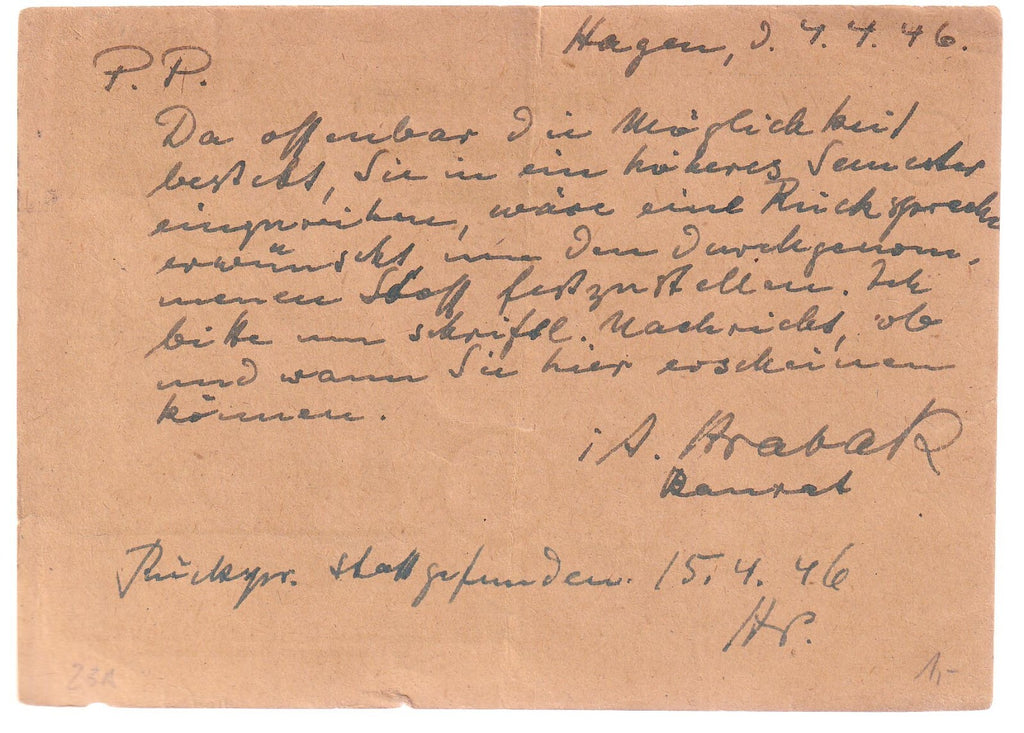 Hagen, d. 4.4.46.
P.P.
Da offenbar die Möglichkeit
besteht, Sie in ein höheres Semester
einzureihen, wäre eine Rücksprache
erwünscht, um den durchgenom-
menen Stoff festzustellen. Ich
bitte um schriftl. Nachricht, ob
und wann Sie hier erscheinen
können.
i A. Hrabak
Baurat
Rückspr. stattgefunden. 15.4.46
Hr.
23A
1,-